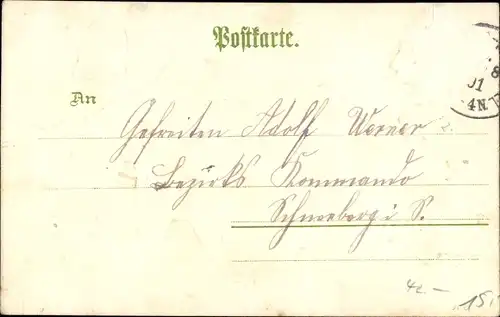 Postkarte.
8
01
4N.
An
Gefreiten Adolf Werner
Bezirks Kommando
Schneeberg i S.
4e –